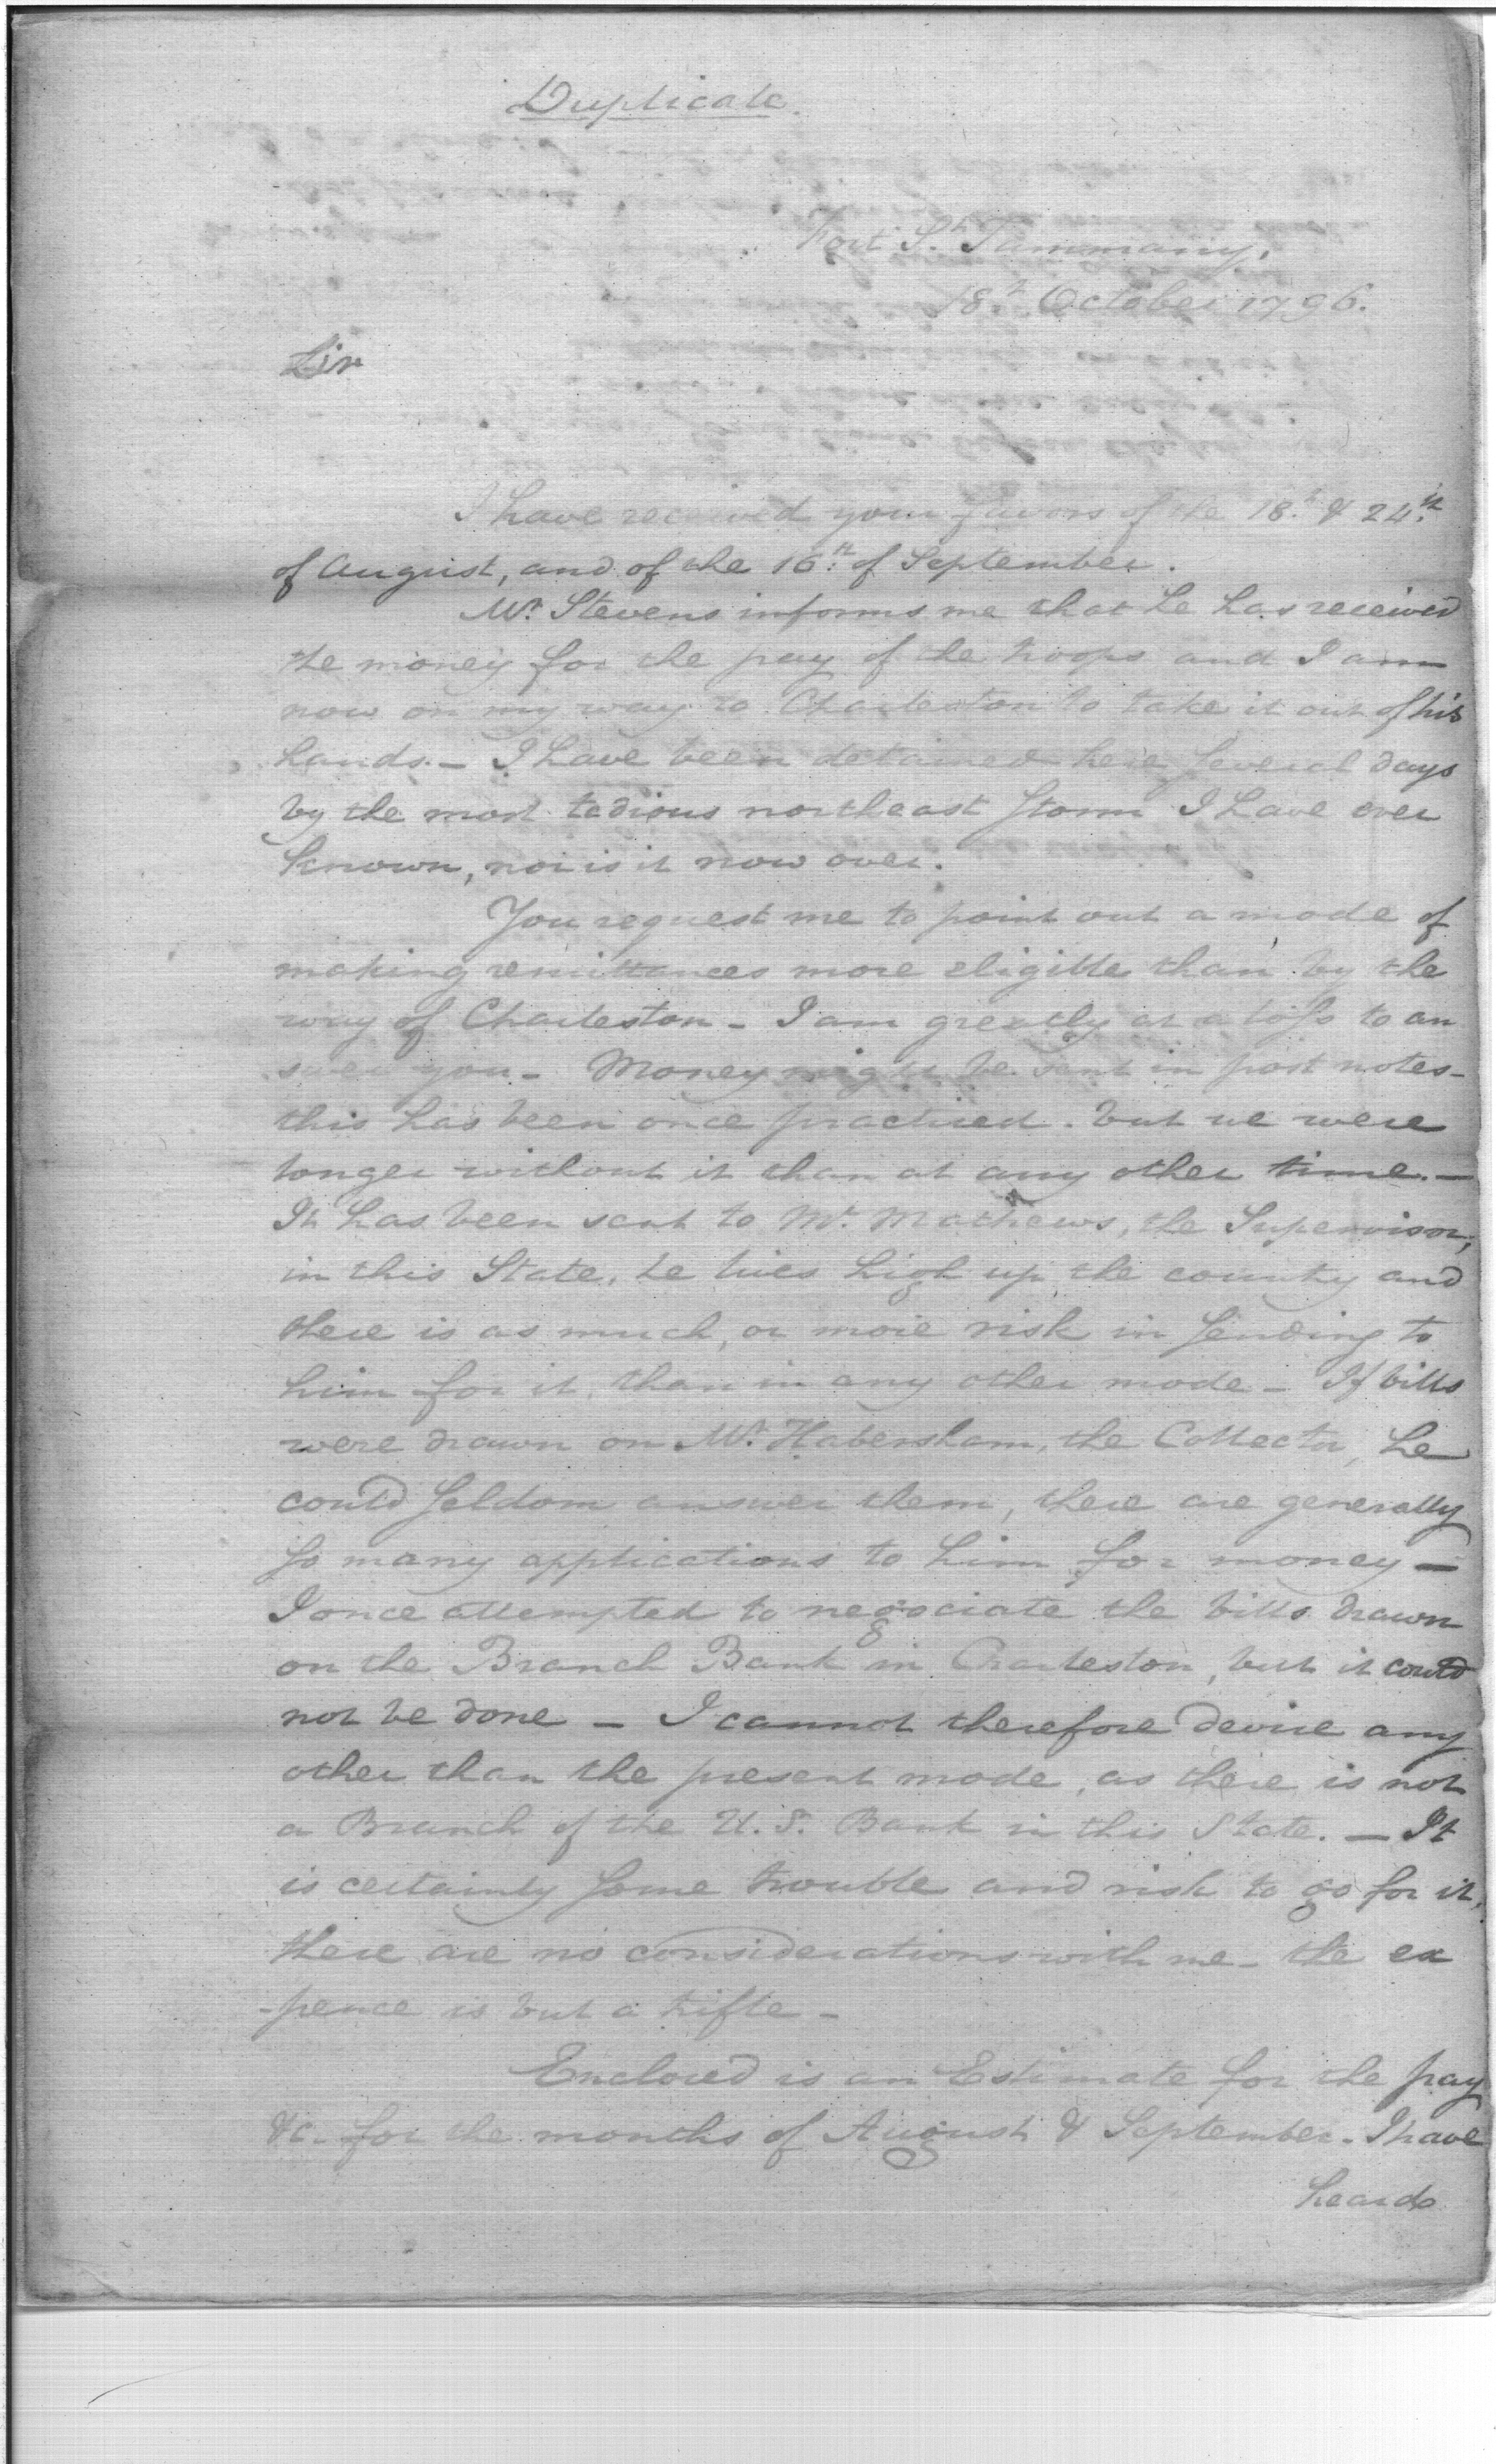 Duplicate.
Fort St. Tammany,
18th October 1796.
Sir
I have received your favors of the 18th & 24th
of August, and of the 16th of September.
Mr. Stevens informs me that he has received
the money for the pay of the troops and I am
now on my way to Charleston to take it out of his
hands. – I have been detained here several days
by the most tedious northeast storm I have ever
known, nor is it now over.
You request me to point out a mode of
making remittances more eligible than by the
way of Charleston – I am greatly at a loss to an
swer you – Money might be sent in post notes –
this has been once practiced. but we were
longer without it than at any other time. –
It has been sent to Mr. Mathews, the Supervisor,
in this State, he lives high up the country and
there is as much, or more risk in sending to
him for it, than in any other mode – If bills
were drawn on Mr. Habersham, the Collector, he
could seldom answer them, there are generally
so many applications to him for money –
I once attempted to negociate the bills drawn
on the Branch Bank in Charleston, but it could
not be done – I cannot therefore devise any
other than the present mode, as there is not
a Branch of the U.S. Bank in this State. – It
is certainly some trouble and risk to go for it,
these are no considerations with me – the ex
-pence is but a trifle –
Enclosed is an Estimate for the pay
&c. for the months of August & September. I have
heard